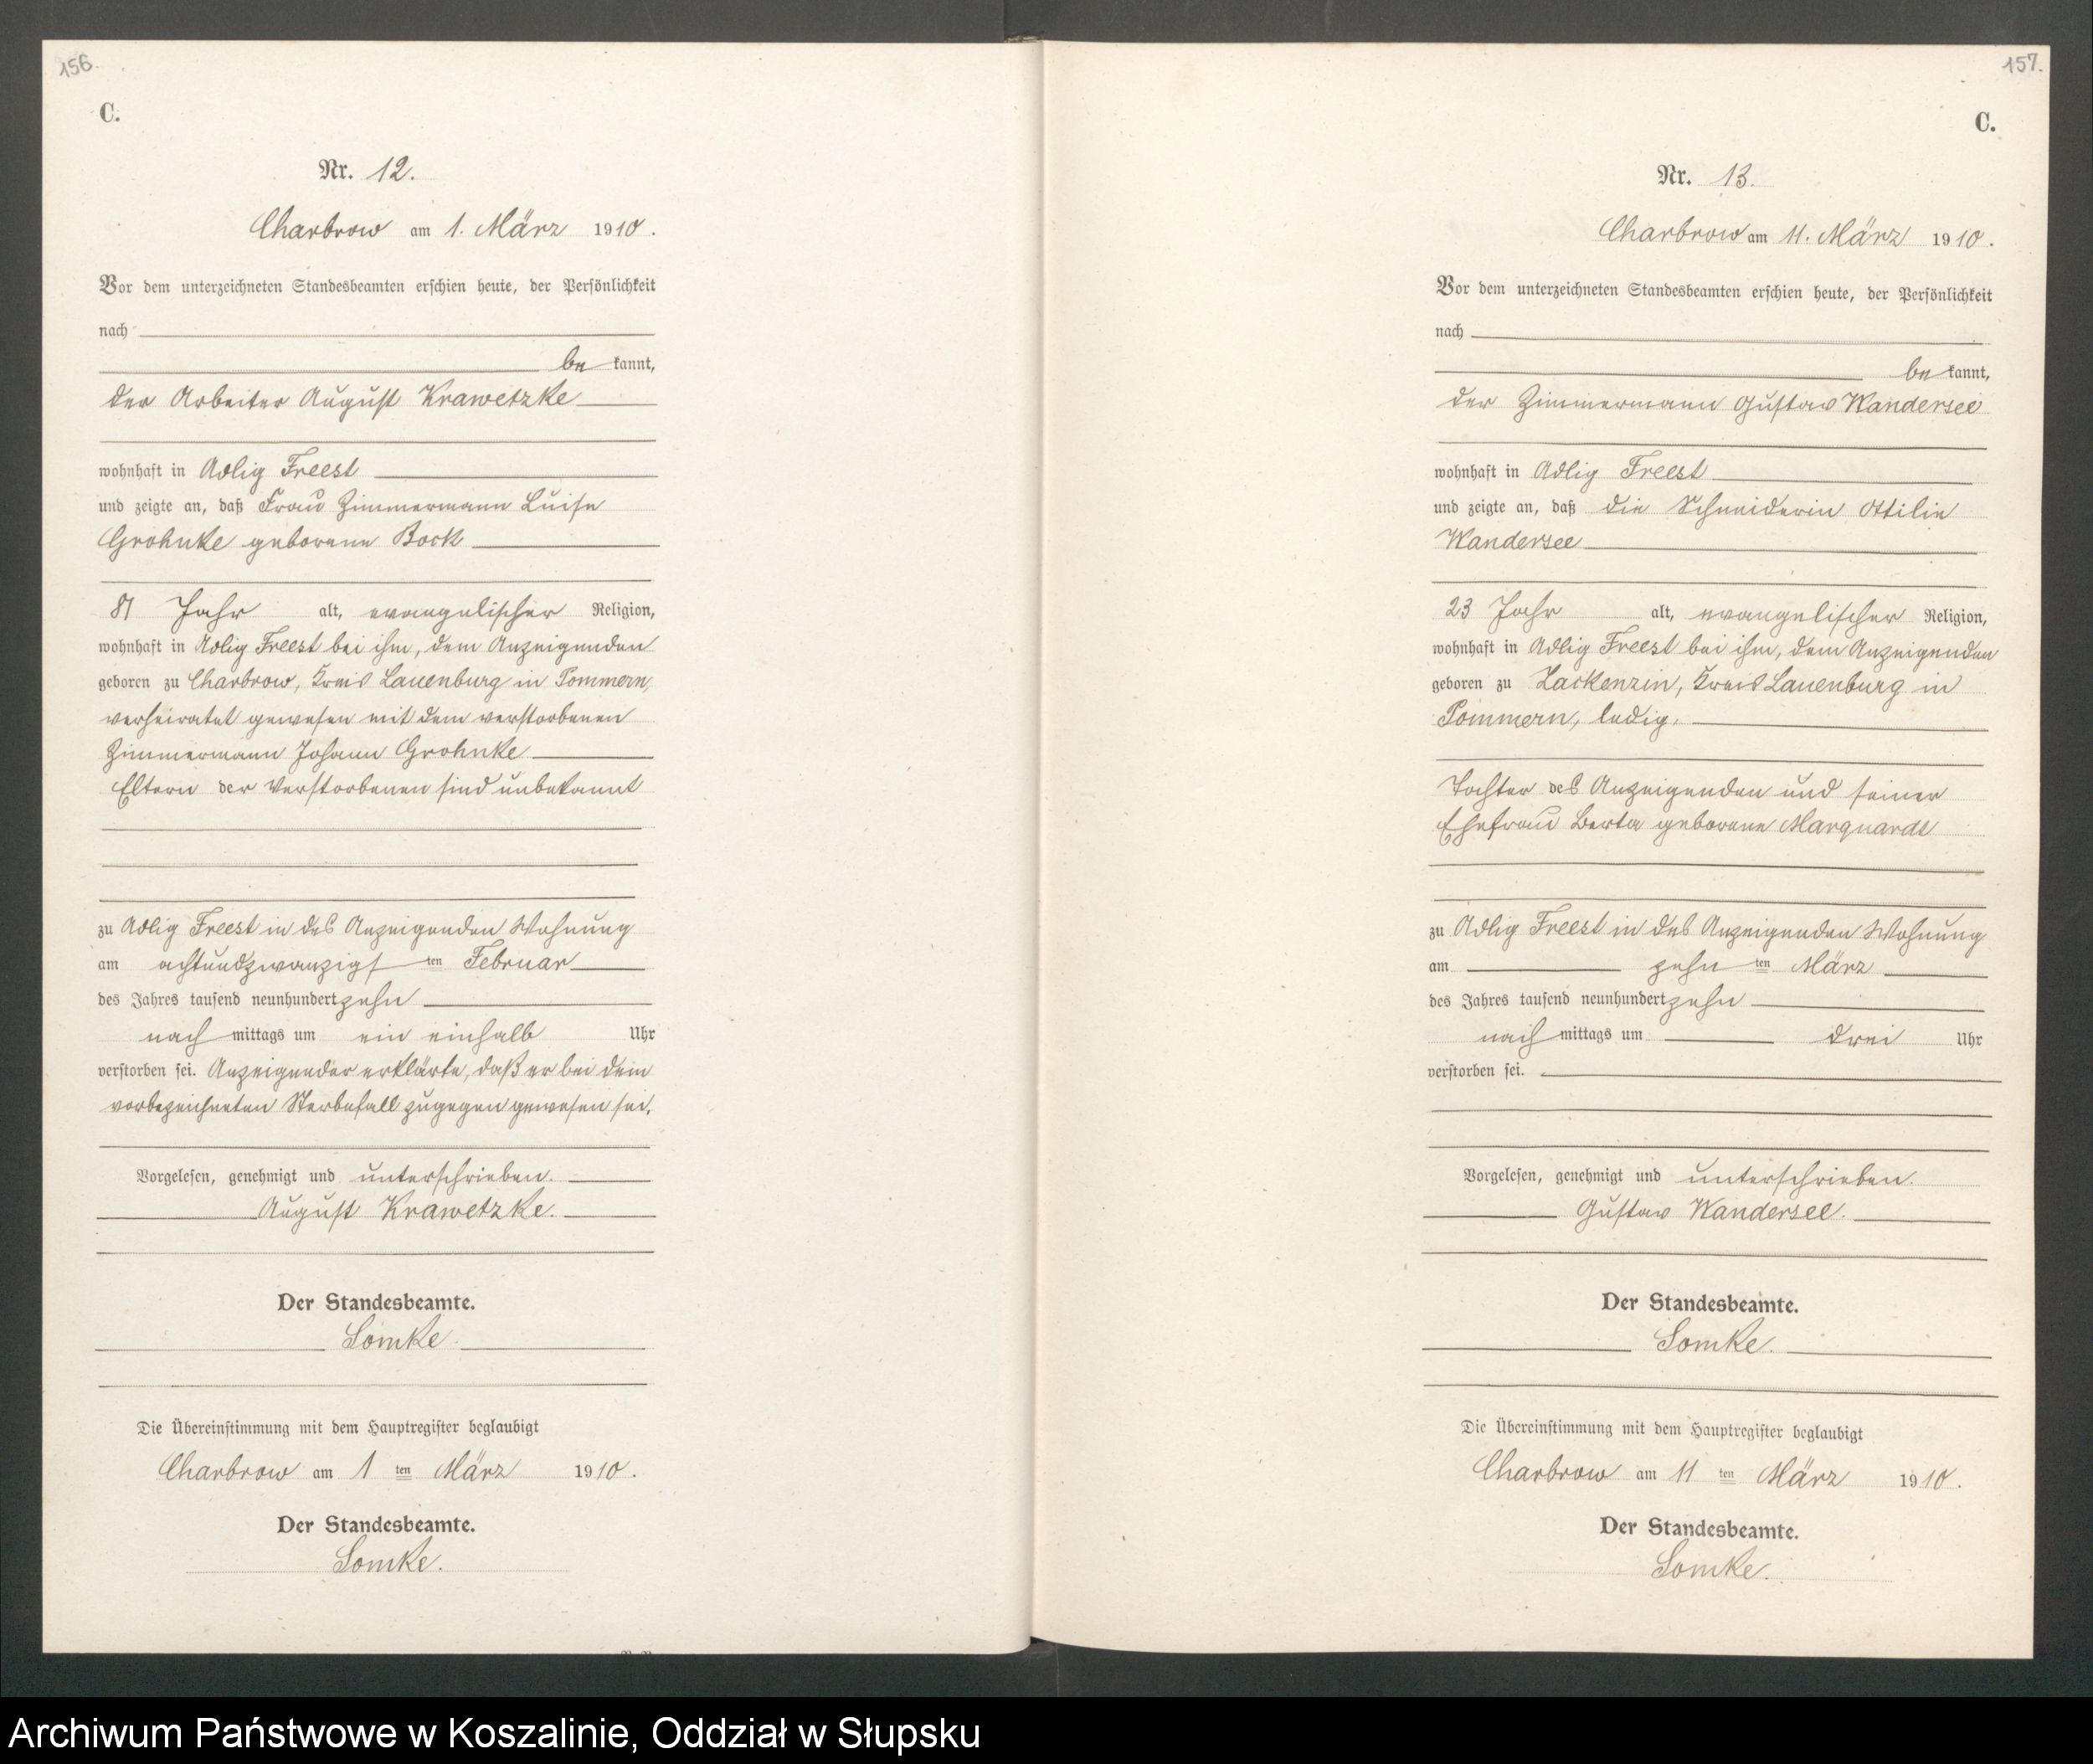 156.
C.
Nr. 12.
Charbrow am 1. März 1910.
Vor dem unterzeichneten Standesbeamten erschien heute, der Persönlichkeit
nach
be kannt,
der Arbeiter August Krawetzke
wohnhaft in Adlig Freest
und zeigte an, daß Frau Zimmermann Luise
Grohnke geborene Bock
81 Jahr alt, evangelischer Religion,
wohnhaft in Adlig Freest bei ihm, dem Anzeigenden
geboren zu Charbrow, Kreis Lauenburg in Pommern,
verheiratet gewesen mit dem verstorbenen
Zimmermann Johann Grohnke
Eltern der Verstorbenen sind unbekannt
zu Adlig Freest in des Anzeigenden Wohnung
am achtundzwanzigsten Februar
des Jahres tausend neunhundert zehn
nach mittags um ein einhalb Uhr
verstorben sei. Anzeigender erklärte, daß er bei dem
vorbezeichneten Sterbefall zugegen gewesen sei.
Vorgelesen, genehmigt und unterschrieben.
August Krawetzke.
Der Standesbeamte.
Lomke.
Die Übereinstimmung mit dem Hauptregister beglaubigt
Charbrow am 1 ten März 1910.
Der Standesbeamte.
Lomke.
157.
C.
Nr. 13.
Charbrow am 11. März 1910.
Vor dem unterzeichneten Standesbeamten erschien heute, der Persönlichkeit
nach
be kannt,
der Zimmermann Gustav Wandersee
wohnhaft in Adlig Freest
und zeigte an, daß die Schneiderin Ottilie
Wandersee
23 Jahr alt, evangelischer Religion,
wohnhaft in Adlig Freest bei ihm, dem Anzeigenden
geboren zu Zackenzin, Kreis Lauenburg in
Pommern, ledig,
Tochter des Anzeigenden und seiner
Ehefrau Berta geborene Marquardt
zu Adlig Freest in des Anzeigenden Wohnung
am zehn ten März
des Jahres tausend neunhundert zehn
nach mittags um drei Uhr
verstorben sei.
Vorgelesen, genehmigt und unterschrieben.
Gustav Wandersee.
Der Standesbeamte.
Lomke.
Die Übereinstimmung mit dem Hauptregister beglaubigt
Charbrow am 11 ten März 1910.
Der Standesbeamte.
Lomke.
Archiwum Państwowe w Koszalinie, Oddział w Słupsku